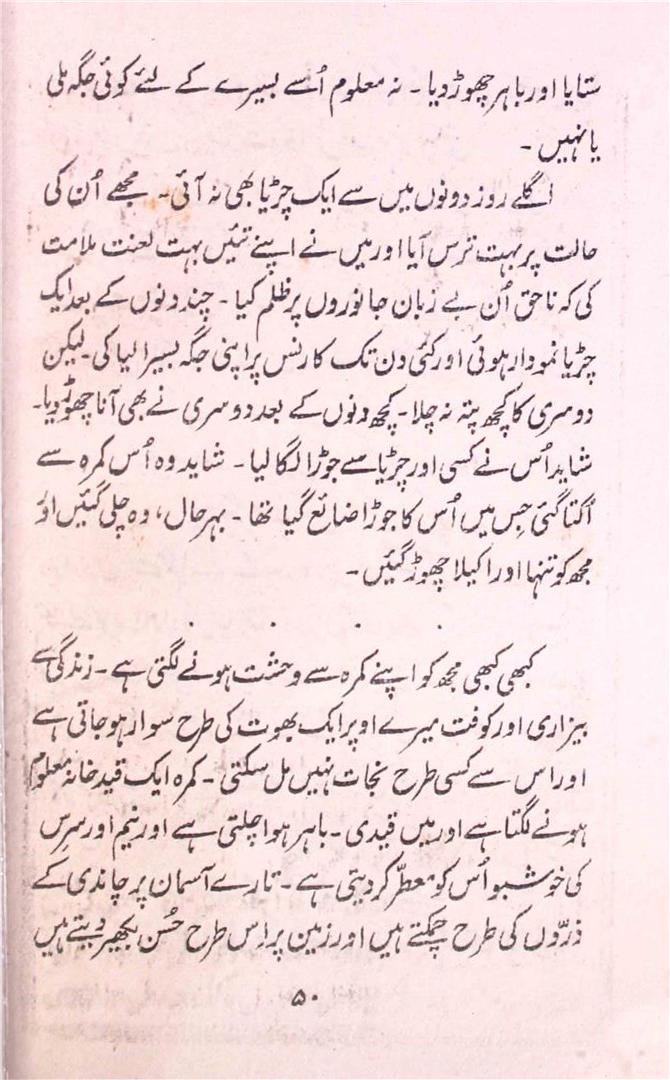 ستایا اور باہر چھوڑ دیا۔ نہ معلوم اُسے بسیرے کے لئے کوئی جگہ ملی
یا نہیں۔
اگلے روز دونوں میں سے ایک چڑیا بھی نہ آئی۔ مجھے اُن کی
حالت پر بہت ترس آیا اور میں نے اپنے تئیں بہت لعنت ملامت
کی کہ ناحق اُن بے زبان جانوروں پر ظلم کیا۔ چند دنوں کے بعد ایک
چڑیا نمودار ہوئی اور کئی دن تک کارنس پر اپنی جگہ بسیرا لیا کی۔ لیکن
دوسری کا کچھ پتہ نہ چلا۔ کچھ دنوں کے بعد دوسری نے بھی آنا چھوڑ دیا۔
شاید اُس نے کسی اور چڑیا سے جوڑا لگا لیا۔ شاید وہ اُس کمرہ سے
اُکتا گئی جس میں اُس کا جوڑا ضائع گیا تھا۔ بہر حال، وہ چلی گئیں اور
مجھ کو تنہا اور اکیلا چھوڑ گئیں۔
. . . .
کبھی کبھی مجھ کو اپنے کمرہ سے وحشت ہونے لگتی ہے۔ زندگی سے
بیزاری اور کوفت میرے اوپر ایک بھوت کی طرح سوار ہو جاتی ہے
اور اس سے کسی طرح نجات نہیں مل سکتی۔ کمرہ ایک قید خانہ معلوم
ہونے لگتا ہے اور میں قیدی۔ باہر ہوا چلتی ہے اور نیم اور سرس
کی خوشبو اُس کو معطّر کر دیتی ہے۔ تارے آسمان پر چاندی کے
ذرّوں کی طرح چمکتے ہیں اور زمین پر اس طرح حُسن بکھیر دیتے ہیں
۵۰